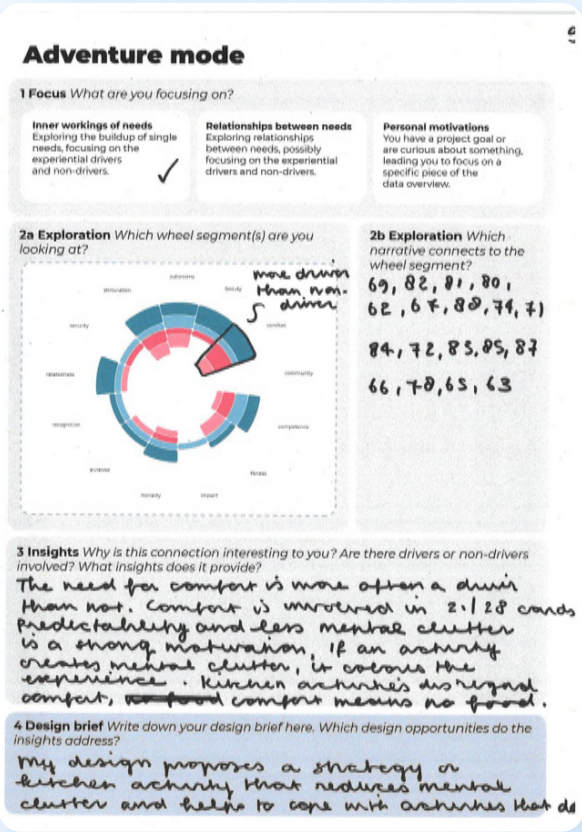 Adventure mode
1 Focus What are you focusing on?
Inner workings of needs
Exploring the buildup of single
needs, focusing on the
experiential drivers
and non-drivers.
Relationships between needs
Exploring relationships
between needs, possibly
focusing on the experiential
drivers and non-drivers.
Personal motivations
You have a project goal or
are curious about something,
leading you to focus on a
specific piece of the
data overview.
2a Exploration Which wheel segment(s) are you
looking at?
autonomy
beauty
comfort
community
competence
fitness
impact
morality
purpose
recognition
relatedness
security
stimulation
more driver
than non-
driver
2b Exploration Which
narrative connects to the
wheel segment?
69, 82, 81, 80,
62, 67, 88, 74, 71
84, 72, 83, 85, 87
66, 78, 65, 63
3 Insights Why is this connection interesting to you? Are there drivers or non-drivers
involved? What insights does it provide?
The need for comfort is more often a
than not. Comfort is involved in 21/28 cards
Predictability and less mental clutter
is a strong motivation. If an activity
creates mental clutter, it colours the
experience. Kitchen activities disregard
comfort, comfort means no food.
4 Design brief Write down your design brief here. Which design opportunities do the
insights address?
My design proposes a strategy or
kitchen activity that reduces mental
clutter and helps to cope with activities that